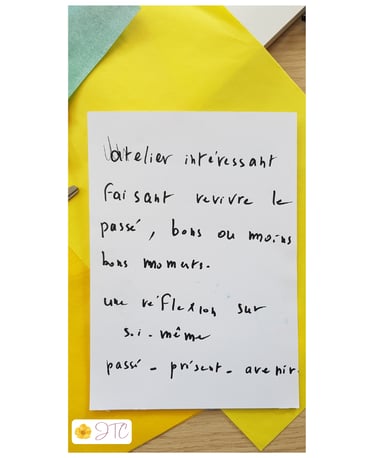 atelier intéressant
faisant revivre le
passé, bons ou moins
bons moments.
une réflexion sur
soi-même
passé - présent - avenir.
JTC